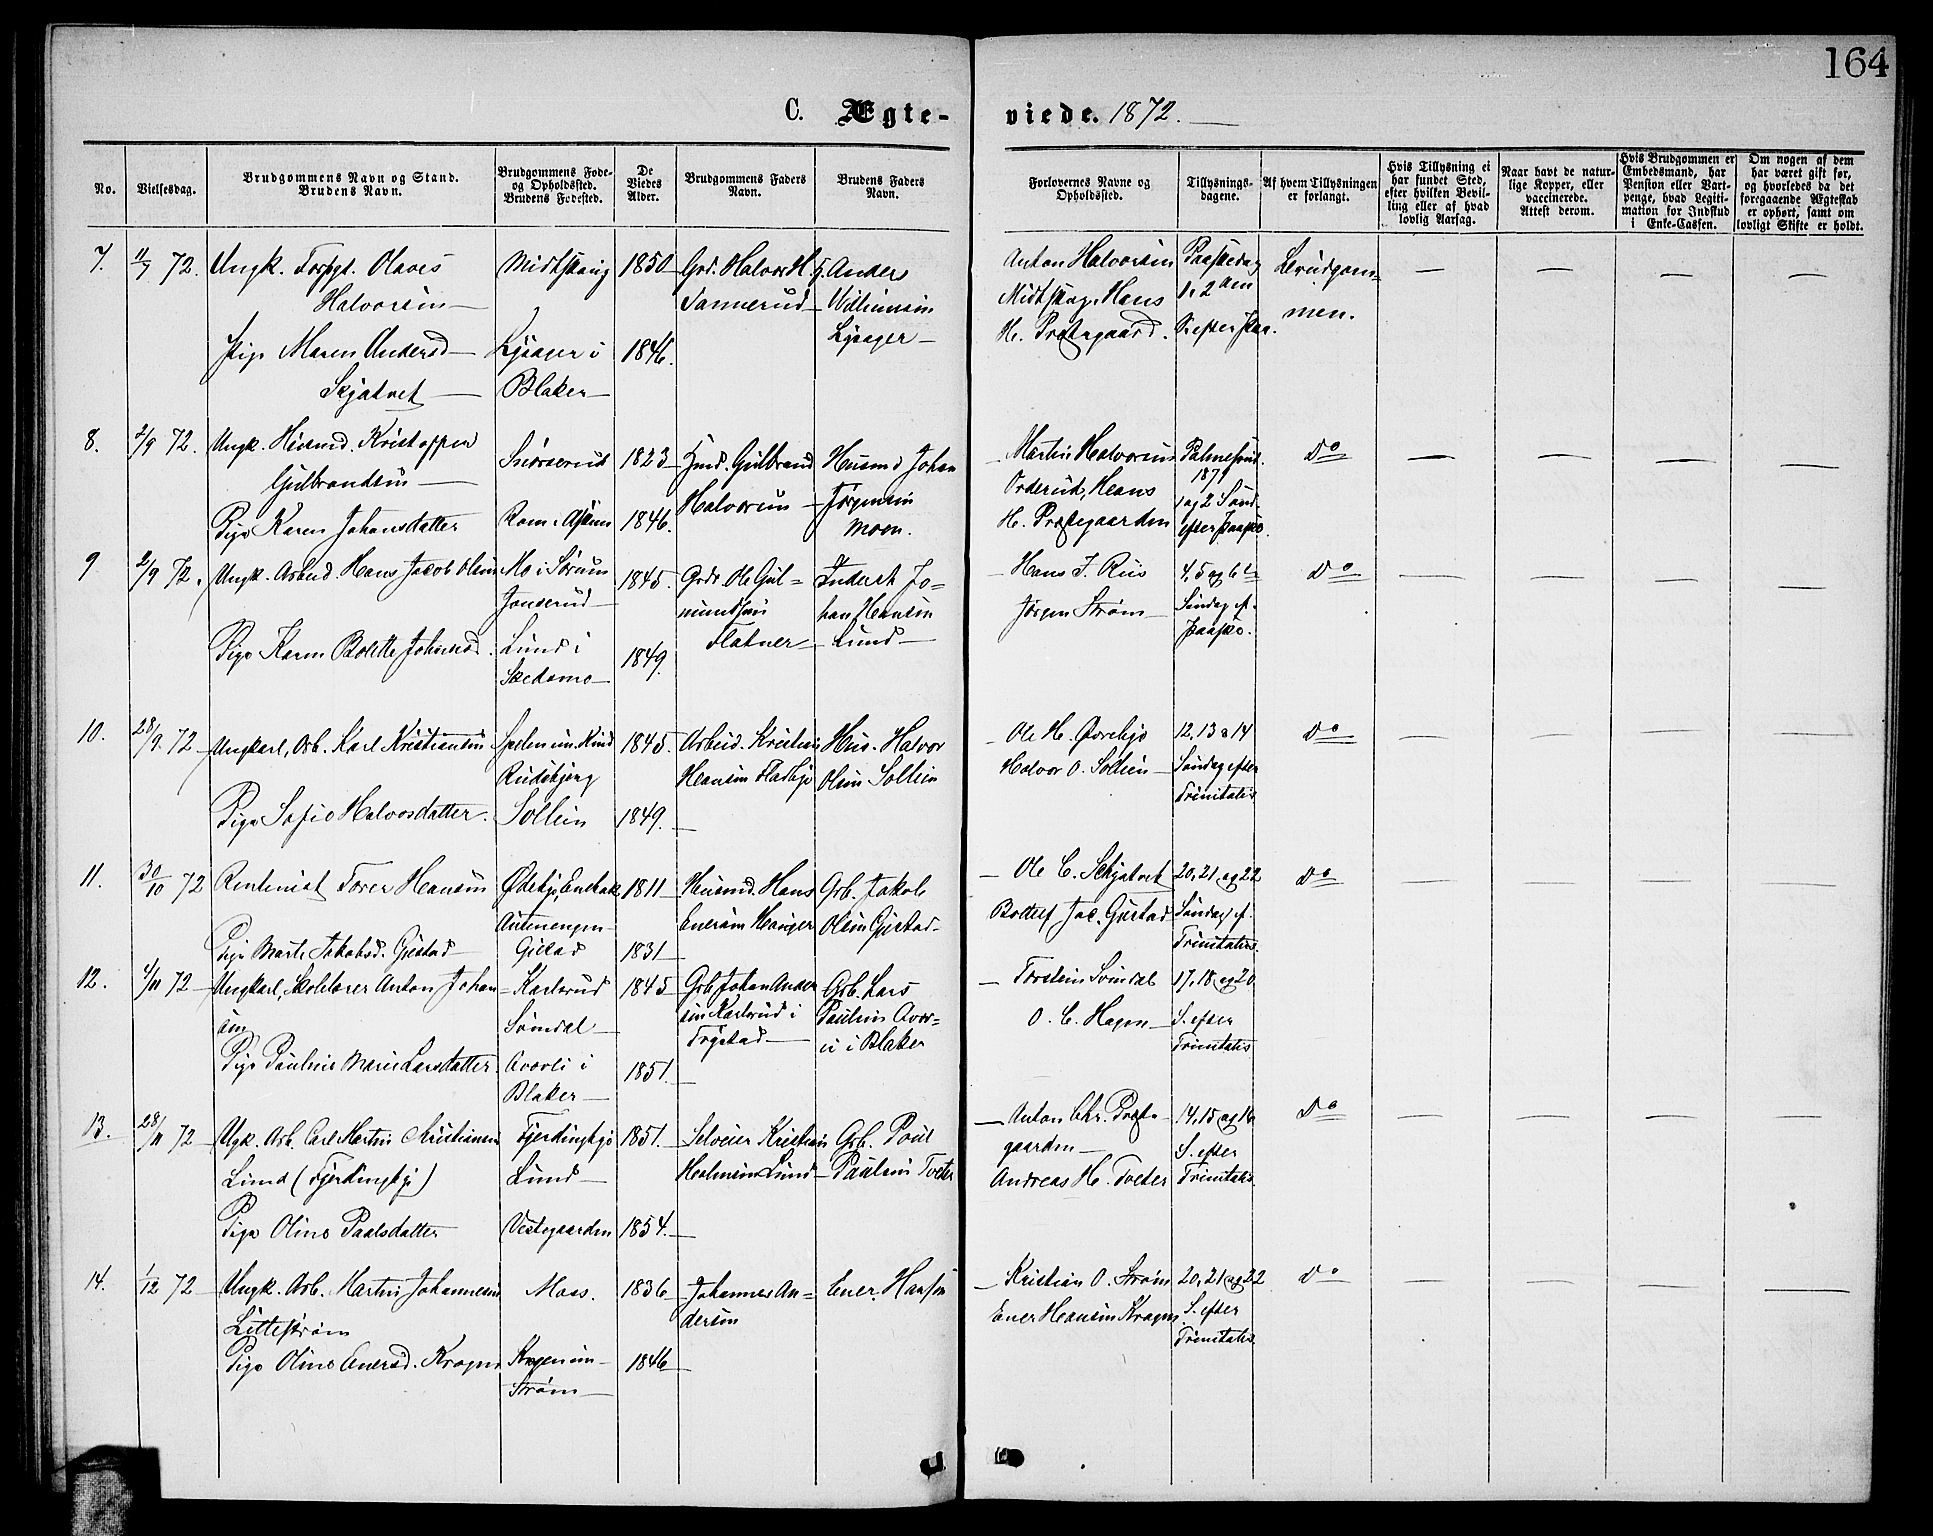 164
C. Ægte-
viede. 1872.
No.
Vielsesdag.
Brudgommens Navn og Stand.
Brudens Navn.
Brudgommens Føde-
og Opholdssted.
Brudens Fødested.
De
Viedes
Alder.
Brudgommens Faders
Navn.
Brudens Faders
Navn.
Forlovernes Navne og
Opholdssted.
Tillysnings-
dagene.
Af hvem Tillysningen
er forlangt.
Hvis Tillysning ei
har fundet Sted,
efter hvilken Bevil-
ling eller af hvad
lovlig Aarsag.
Naar havt de natur-
lige Kopper, eller
vaccinerede.
Attest derom.
Hvis Brudgommen er
Embedsmand, har
Pension eller Vart-
penge, hvad Legiti-
mation for Indskud
i Enke-Cassen.
Om nogen af dem
har været gift før,
og hvorledes da det
foregaaende Ægteskab
er ophørt, samt om
lovligt Skifte er holdt.
7. 11/7 72.
Ungk. Olaves
Halvorsen
Pige Maren Andersd
Skjatvet
Midtskoug
Lysager i
Blaker
1850
1846.
Grd. Halvor H.
Tannerud
G. Anders
Lysager
Anton Halvorsen
Midtskog. Hans
H. Prestegaard.
Paaskedag
1. 2den
S. efter Paa.
Brudgom-
men.
8. 2/9 72.
Ungk. Husmd. Kristoffer
Gulbrandsen
Pige Karen Johansdatter
Snorserud
Rom i Askim
1823
1846.
Hmd. Gulbrand
Halvorsen
Husmd Johan
Jørgensen
Moen.
Martin Halvorsen
Orderud, Hans
H. Prestegaarden
Palmesønd.
1871
1 og 2 Sønd.
efter Paaske
Do
9 2/9 72.
Ungk. Arbeid. Hans Jacob Olsen
Pige Karen Bolette Johansd.
Mo i Sørum
Jonserud
Lund i
Skedsmo
1845.
1849.
Grdr Ole Gul-
mundsen
Flatner
Inderst Jo-
han Hansen
Lund
Hans J. Riis
Jørgen Strøm
4, 5 og 6te
Søndag ef.
Paaske.
Do
10. 28/9 72
Ungkarl, Arb. Karl Kristiansen
Pige Sofie Halvorsdatter.
Rudsbjerg
Sollien
1845.
1849.
Arbeid. Kristian
Hansen Fladbye
Hus. Halvor
Olsen Sollien
Ole H. Øvrebye
Halvor O. Sollien
12, 13 & 14
Søndag efter
Trinitatis
Do
11. 30/10 72
Rentenist Torer Hansen
Pige Marte Jakobsd. Gjestad
Ødebye, Enebak
Gjestad
1811
1831
Husmd. Hans
Enersen Hauger
Grb. Jakob
Olsen Gjestad
Ole C. Skjatvet
Bottolf Jac. Gjestad
20, 21 og 22
Søndag ef.
Trinitatis
Do
12. 4/11 72
Ungkarl, Skolelærer Anton Johan
sen
Pige Pauline Marie Larsdatter
Karlsrud
Sømdal
Avorli i
Blaker
1845
1851.
Grb Johan Ander
sen Karlsrud i
Trøgstad
Grb. Lars
Paulsen Avor-
li i Blaker
Torstein Svindal
O. C. Hagen
17, 18 og 20
S. efter
Trinitatis
13. 28/11 72
Ugk. Arb. Carl Martin Christiansen
Lund (Fjerdingbye)
Pige Oline Paalsdatter
Fjerdingbye
Lund
Vestegaarden
1851.
1854.
Selveier Kristian
Halvorsen Lund
Grb. Poul
Paulsen Tveter
Anton Chr. Preste
gaarden
Andreas H. Tveter
14, 15 og 16
S. efter
Trinitatis
Do
14. 1/12 72
Ungk. Arb. Martin Johannesen
Lillestrøm
Pige Oline Enersd. Kragen
Moss.
Kragen
Strøm
1836
1846
Johannes An-
dersen
Ener. Hansen
Kristian O. Strøm
Ener Hansen Kragen
20, 21 og 22
S. efter
Trinitatis
Do